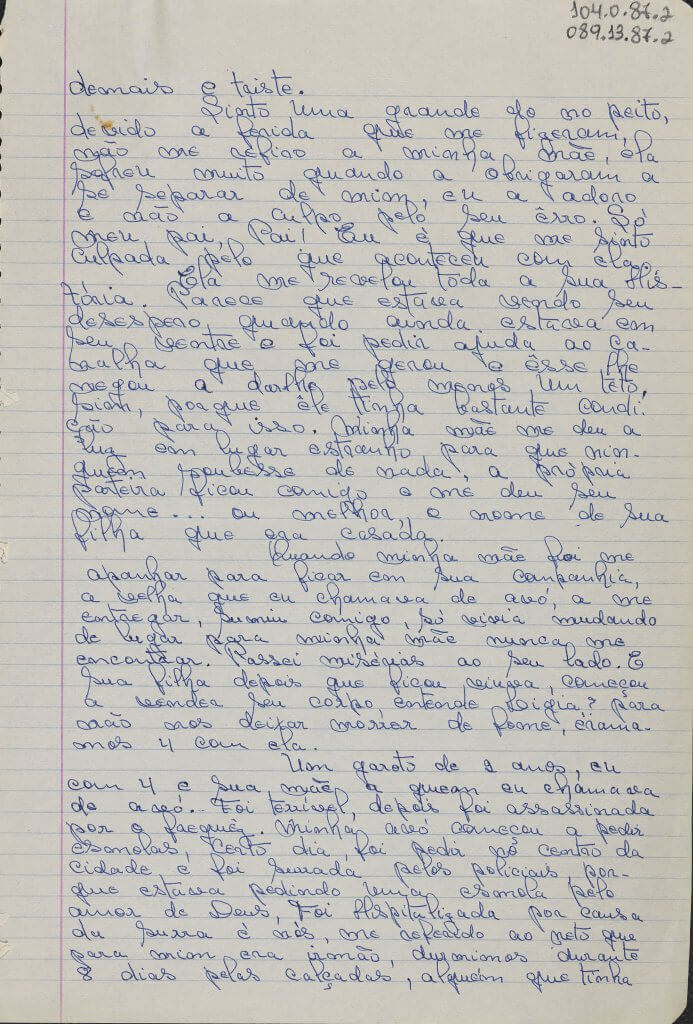 104.0.87.2
089.13.87.2
demais e triste.
Sinto uma grande do no peito,
devido a ferida que me fizeram,
não me refiro a minha mãe, ela
sofreu muito quando a obrigaram a
se separar de mim, eu a adoro
e não a culpo pelo seu êrro. Só
meu pai, Pai! Eu é que me sinto
culpada pelo que aconteceu com ela.
Ela me revelou toda a sua His-
tória. Parece que estava vendo seu
desespero, quando ainda estava em
seu ventre e foi pedir ajuda ao ca-
nalha que me gerou e êsse lhe
negou a dar lhe pelo menos um teto,
porque êle tinha bastante condi
ção para isso. Minha mãe me deu a
luz em lugar estranho para que nin-
guém soubesse de nada, a própria
parteira ficou comigo e me deu seu
nome... ou melhor, o nome de sua
filha que era casada.
Quando minha mãe foi me
apanhar para ficar em sua companhia,
a velha que eu chamava de avó, a me
entregar, sumiu comigo, só vivia mudando
de lugar para minha mãe nunca me
encontrar. Passei misérias ao seu lado. E
sua filha depois que ficou viuva, começou
a vender seu corpo, entende Ligia? para
não nos deixar morrer de fome, érama-
mos 4 com ela.
Um garoto de 2 anos, eu
com 4 e sua mãe a quem eu chamava
de avó. Foi terrível, depois foi assassinada
por o freguêz. Minha avó começou a pedir
esmolas, certo dia, foi pedir no centro da
cidade e foi surrada pelos policiais, por-
que estava pedindo uma esmola pelo
amor de Deus, Foi Hospitalizada por causa
da surra é nós, me refiro ao neto que
para mim era irmão, durmimos durante
8 dias pelas calçadas, alguém que tinha